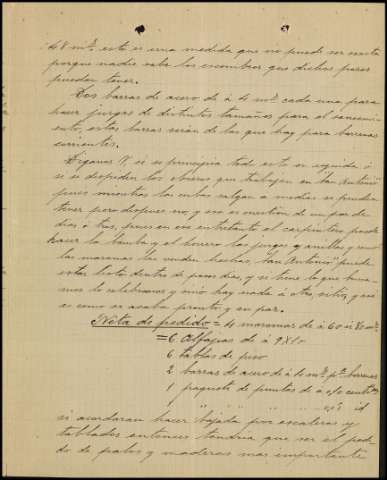 48 mts. este es una medida que no puede ser exacta
porque nadie sabe los escombros que dichos pozos
puedan tener.
Dos barras de acero de á 4 mts. cada una para
hacer juegos de distintos tamaños para el
estas barras serán de las que hay para barrenas
corrientes.
Díganos V. si se principia todo esto en seguida ó
si se despiden los obreros que trabajan en "San Antonio"
pues mientras las cubas salgan a medias se pueden
tener pero despues no y eso es cuestion de un par de
dias ó tres, pues en ese entretanto el carpintero puede
hacer la bomba y el herrero los juegos y anillas, y con
las maromas que venden hechas, "San Antonio" puede
estar listo dentro de pocos dias, y si tiene lo que busca
mos lo celebramos y sinó hay nada á otro sitio, y asi
es como se acaba pronto y en paz.
Nota de pedido = 4 maromas de á 60 ú 80 mts.
= 6 alfajias de á 9 x 10
6 tablas de piso
2 barras de acero de á 4 mts. pa. barrenas
1 paquete de puntas de á 0/0
1 " " " " id
si acordaran hacer bajada por escaleras y
tablados entonces tendria que ser el pedi
do de palos y maderas mas importante